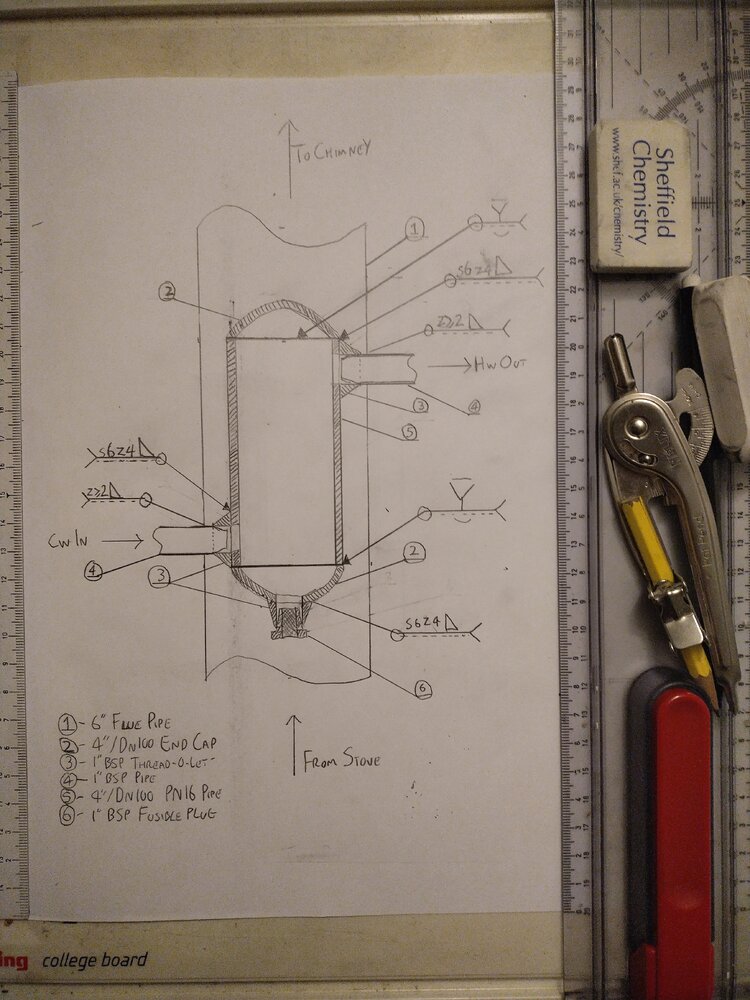 To Chimney
1
2
s6z4
z≥2
HW Out
3
4
5
s6z4
z≥2
CW In
4
3
2
s6z4
6
① - 6" Flue Pipe
② - 4"/DN100 End Cap
③ - 1" BSP Thread-O-Let
④ - 1" BSP Pipe
⑤ - 4"/DN100 PN16 Pipe
⑥ - 1" BSP Fusible Plug
From Stove
Sheffield
Chemistry
www.shef.ac.uk/chemistry/
ing college board